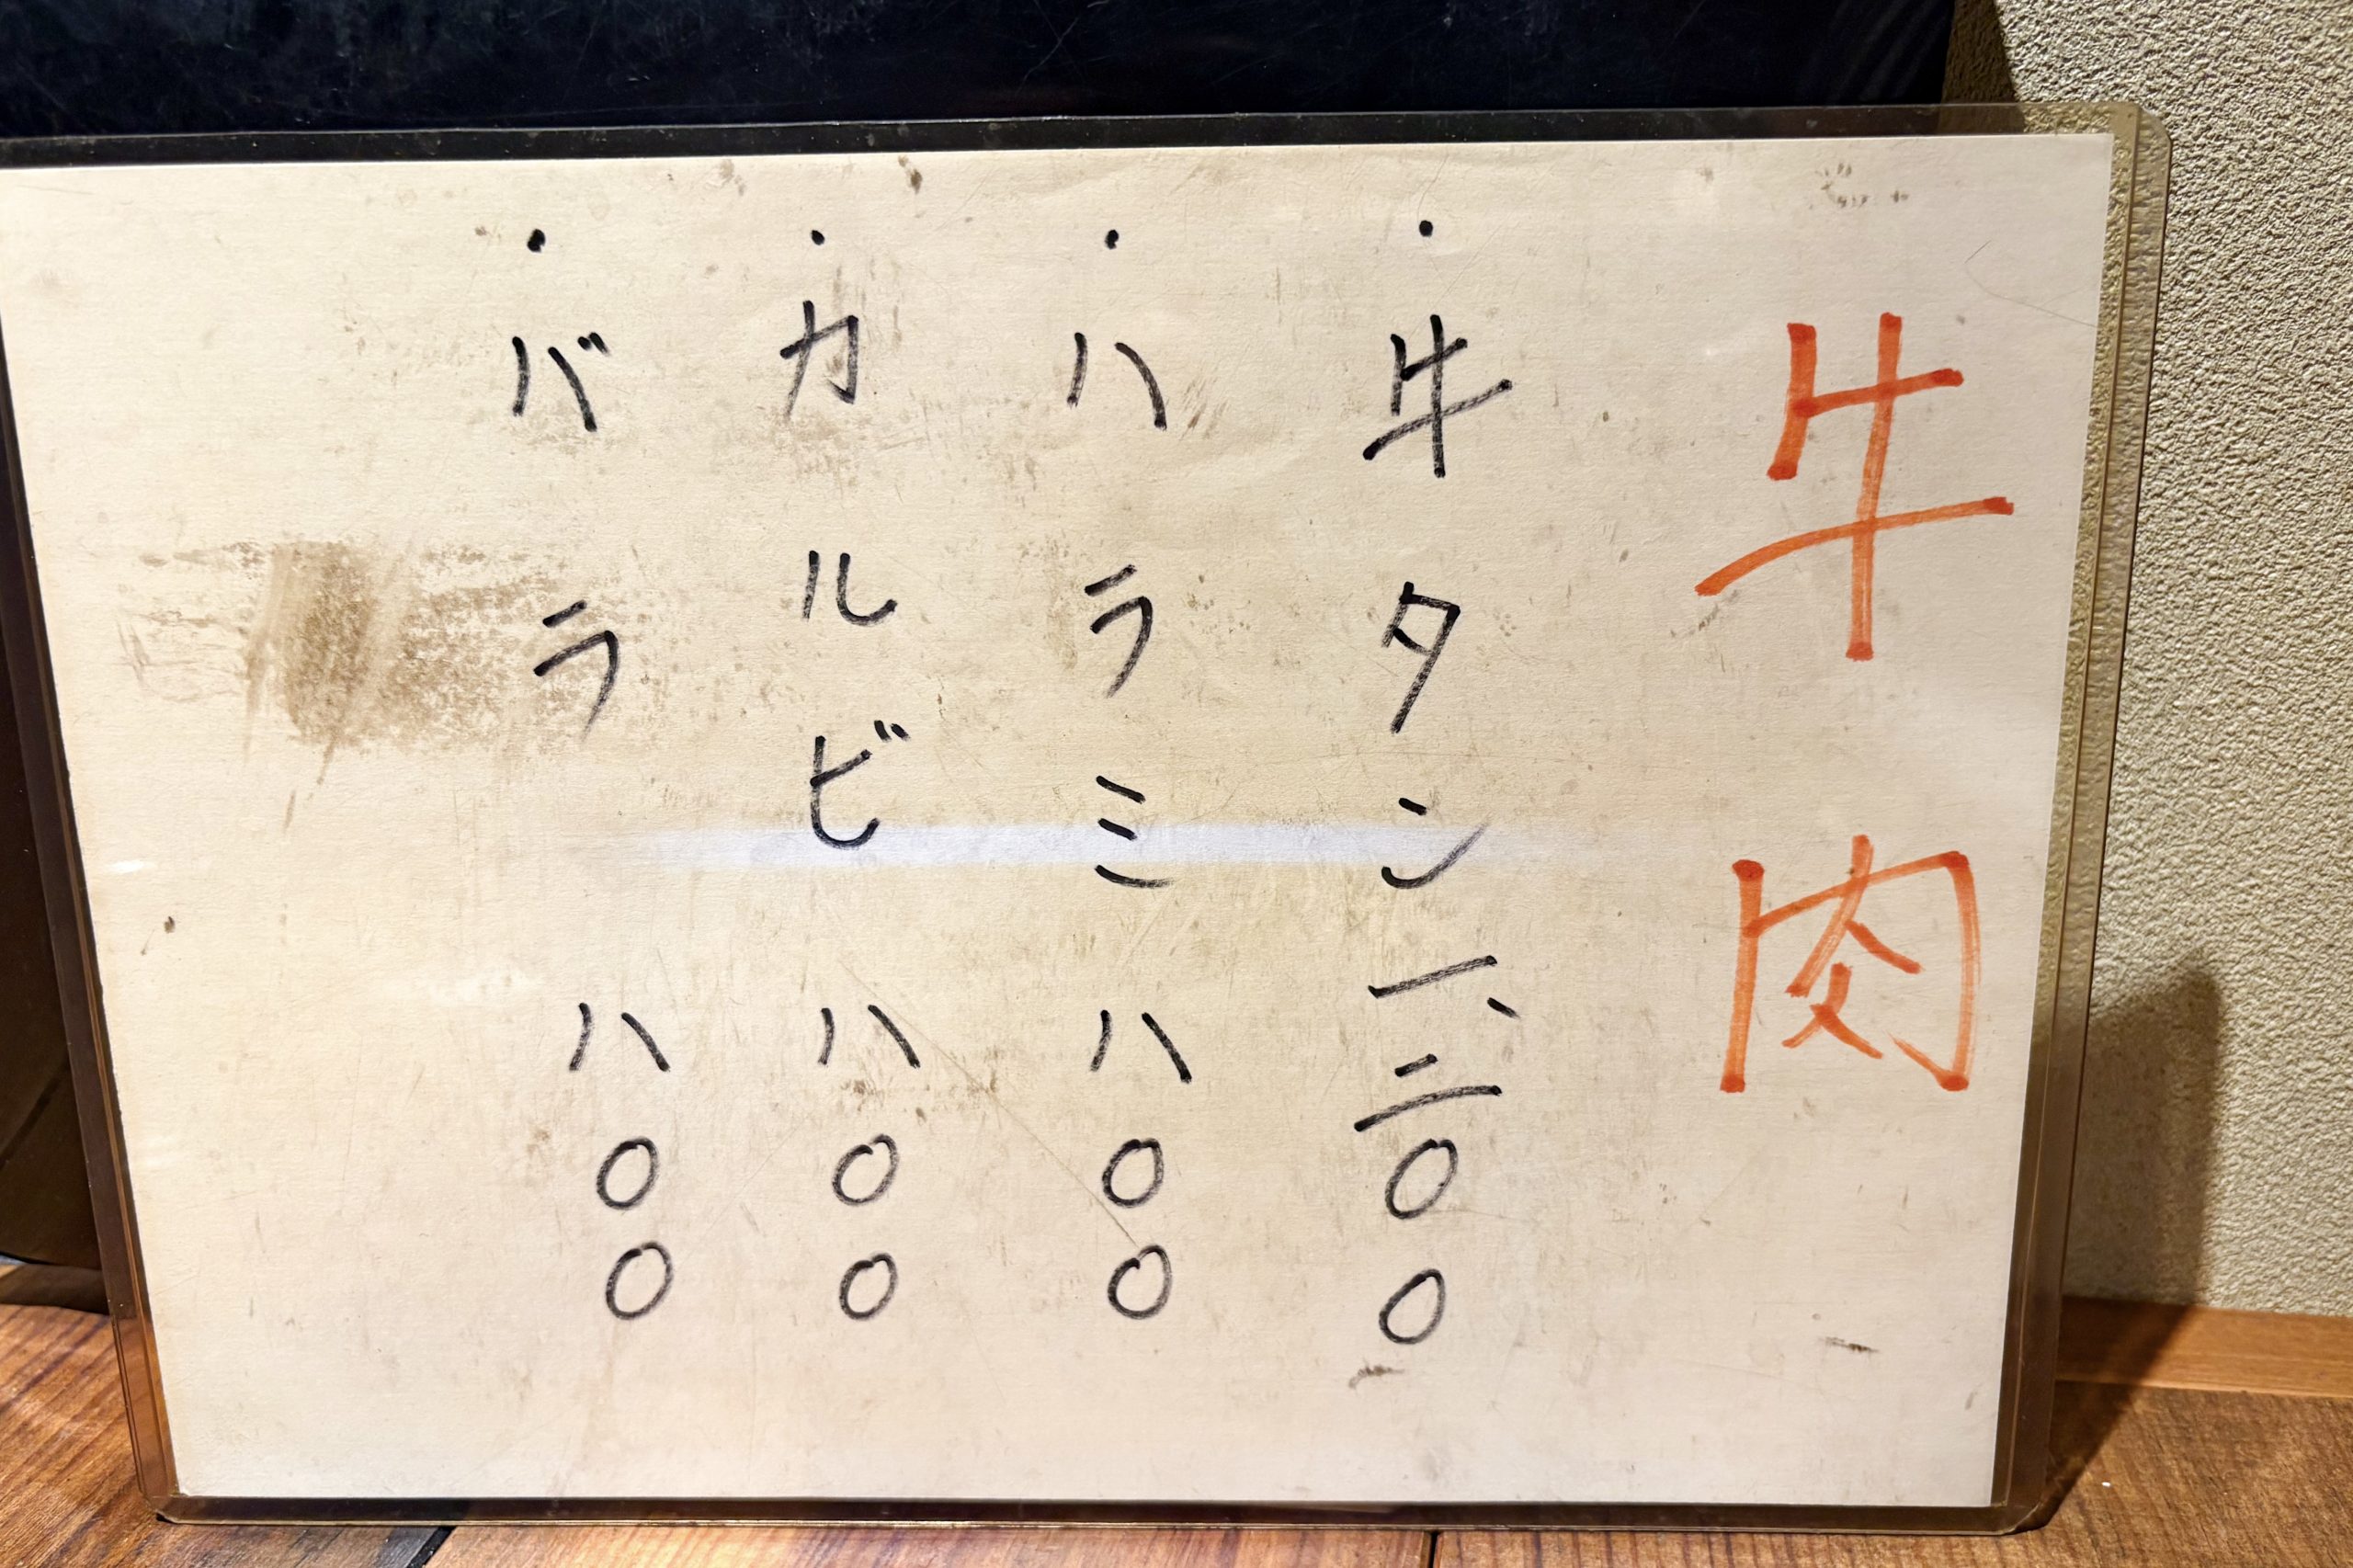 牛肉
・牛タン 一、二〇〇
・ハラミ 八〇〇
・カルビ 八〇〇
・バラ 八〇〇